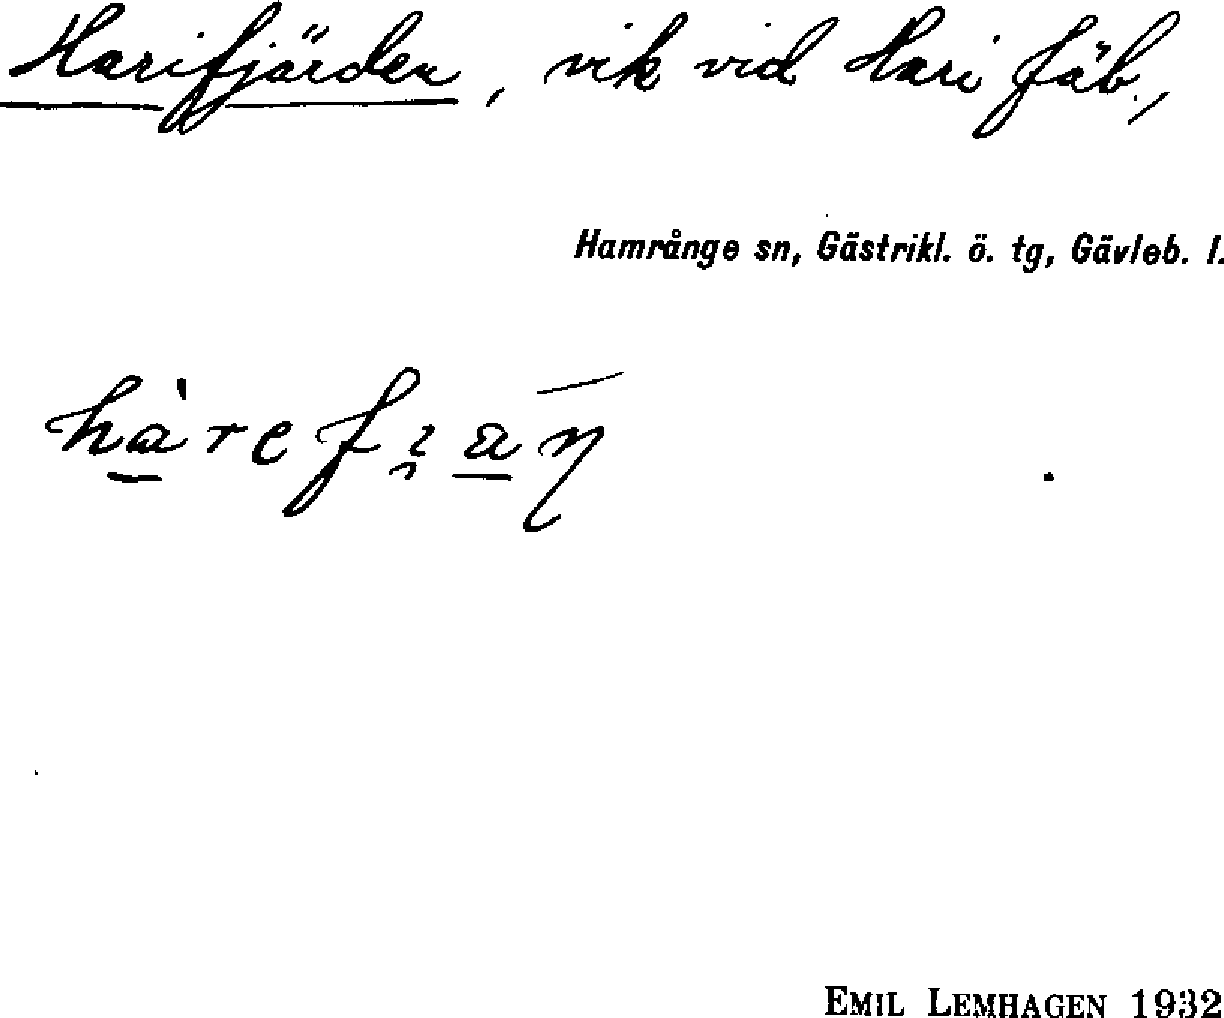 Harifjärden, vik vid Hari fäb.,
Hamrånge sn, Gästrikl. ö. tg, Gävleb. l.
EMIL LEMHAGEN 1932